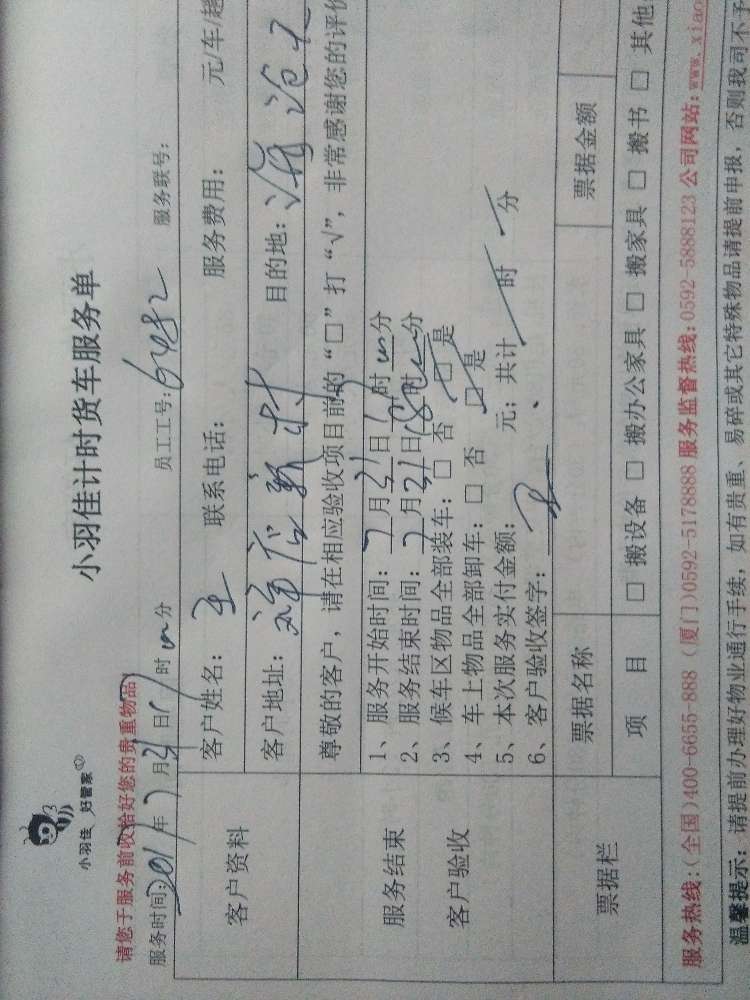 小羽佳 好管家
小羽佳计时货车服务单
请您于服务前收拾好您的贵重物品
服务时间: 年 7 月 31 日 时 分 员工工号: 服务联号:
客户资料
客户姓名: 王 联系电话: 服务费用: 元/车/趟
客户地址: 新村 目的地: 海沧
服务结束
客户验收
尊敬的客户,请在相应验收项目前的“□”打“√”,非常感谢您的评价
1、服务开始时间: 7 月 31 日 时 分
2、服务结束时间: 7 月 31 日 18 时 分
3、候车区物品全部装车: □ 否 □ 是
4、车上物品全部卸车: □ 否 □ 是
5、本次服务实付金额: 元; 共计 时 分
6、客户验收签字: 王
票据栏
票据名称 票据金额
项 目 □ 搬设备 □ 搬办公家具 □ 搬家具 □ 搬书 □ 其他
服务热线:(全国)400-6655-888 (厦门)0592-5178888 服务监督热线:0592-5888123 公司网站:www.xiao
温馨提示:请提前办理好物业通行手续,如有贵重、易碎或其它特殊物品请提前申报,否则我司不予